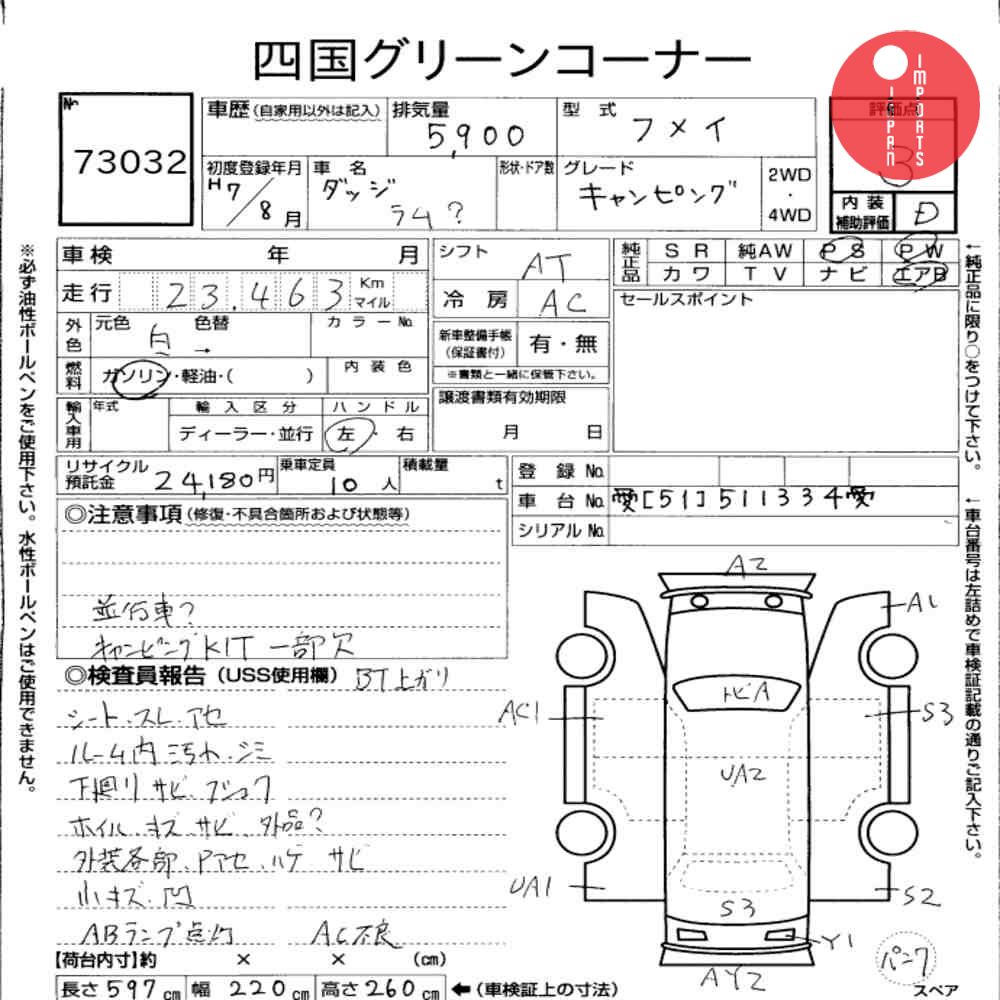 四国グリーンコーナー
JAPAN IMPORTS
№ 73032
車歴(自家用以外は記入)
排気量 5,900
型式 フメイ
評価点 3
初度登録年月 H7/8月
車名 ダッジ ラム?
形状・ドア数
グレード キャンピング
2WD・4WD
内装補助評価 D
車検 年 月
走行 23.463 Km マイル
外色 元色 白 → 色替
カラー№
燃料 ガソリン・軽油・( )
内装色
輸入車用 年式
輸入区分 ディーラー・並行
ハンドル 左・右
シフト AT
冷房 AC
新車整備手帳(保証書付) 有・無
※書類と一緒に保管下さい。
譲渡書類有効期限
月 日
純正品 SR 純AW PS PW
カワ TV ナビ エアB
セールスポイント
リサイクル預託金 24,180円
乗車定員 10人
積載量 t
登録 №
車台 № 愛[51]511334愛
シリアル №
◎注意事項(修復・不具合箇所および状態等)
並行車?
キャンピングKIT 一部欠
◎検査員報告(USS使用欄) BT上がり
シート.スレ.アセ
ルーム内 汚れ.シミ
下廻り サビ.ブショク
ホイル.キズ サビ.外品?
外装各部.Pアセ.ハゲ サビ
小キズ.凹
ABランプ点灯 AC不良
【荷台内寸】約 × × (cm)
長さ597cm 幅220cm 高さ260cm ←(車検証上の寸法)
A2
A1
トビA
AC1
S3
UA2
UA1
S2
S3
Y1
AY2
パンク
スペア
※必ず油性ボールペンをご使用下さい。水性ボールペンはご使用できません。
←純正品に限り○をつけて下さい。
←車台番号は左詰めで車検証記載の通りご記入下さい。